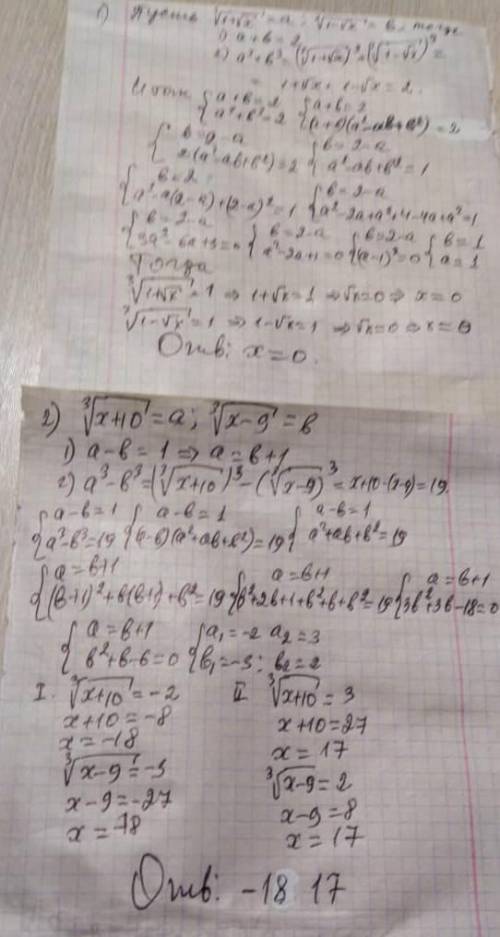 1) Пусть ∛(1+√x) = a; ∛(1-√x) = b, тогда
1) a+b=2
2) a³+b³=(∛(1+√x))³+(∛(1-√x))³=
= 1+√x+1-√x=2.
{a+b=2 a³+b³=2 {a+b=2 (a+b)(a²-ab+b²)=2
{b=2-a 2(a²-ab+b²)=2 {b=2-a a²-ab+b²=1
{b=2-a a²-a(2-a)+(2-a)²=1 {b=2-a a²-2a+a²+4-4a+a²=1
{b=2-a 3a²-6a+3=0 {b=2-a a²-2a+1=0 {b=2-a (a-1)²=0 {b=1 a=1
Тогда
∛(1+√x)=1 ⇒ 1+√x=1 ⇒ √x=0 ⇒ x=0
∛(1-√x)=1 ⇒ 1-√x=1 ⇒ √x=0 ⇒ x=0
Отв: x=0.
2) ∛(x+10)=a; ∛(x-9)=b
1) a-b=1 ⇒ a=b+1
2) a³-b³=(∛(x+10))³-(∛(x-9))³=x+10-(x-9)=19.
{a-b=1 a³-b³=19 {a-b=1 (a-b)(a²+ab+b²)=19 {a-b=1 a²+ab+b²=19
{a=b+1 (b+1)²+b(b+1)+b²=19 {a=b+1 b²+2b+1+b²+b+b²=19 {a=b+1 3b²+3b-18=0
{a=b+1 b²+b-6=0 {a₁=-2 a₂=3 b₁=-3; b₂=2
I. ∛(x+10)=-2 II ∛(x+10)=3
x+10=-8 x+10=27
x=-18 x=17
∛(x-9)=-3 ∛(x-9)=2
x-9=-27 x-9=8
x=-18 x=17
Отв: -18 17